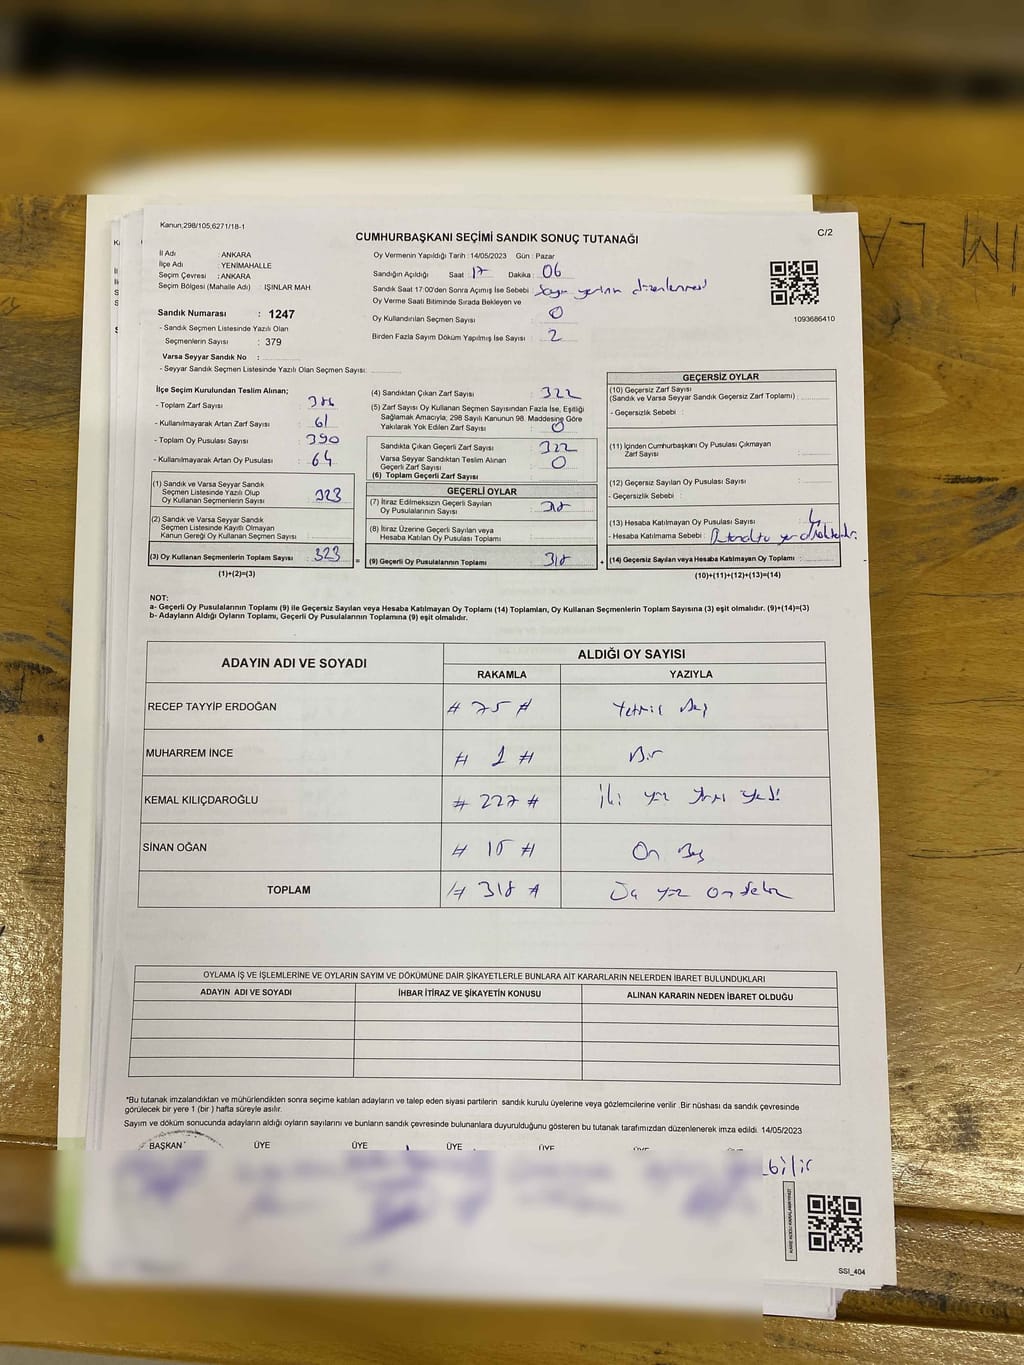 Kanun;298/105;6271/18-1
C/2
CUMHURBAŞKANI SEÇİMİ SANDIK SONUÇ TUTANAĞI
İl Adı : ANKARA
İlçe Adı : YENİMAHALLE
Seçim Çevresi : ANKARA
Seçim Bölgesi (Mahalle Adı) : IŞINLAR MAH.
Oy Vermenin Yapıldığı Tarih : 14/05/2023 Gün : Pazar
Sandığın Açıldığı Saat 17 Dakika : 06
Sandık Saat 17:00'den Sonra Açımış İse Sebebi : Sayım yerinin düzenlenmesi
Oy Verme Saati Bitiminde Sırada Bekleyen ve
Oy Kullandırılan Seçmen Sayısı : 0
Birden Fazla Sayım Döküm Yapılmış İse Sayısı : 2
1093686410
Sandık Numarası : 1247
- Sandık Seçmen Listesinde Yazılı Olan
Seçmenlerin Sayısı : 379
Varsa Seyyar Sandık No :
- Seyyar Sandık Seçmen Listesinde Yazılı Olan Seçmen Sayısı:
İlçe Seçim Kurulundan Teslim Alınan;
- Toplam Zarf Sayısı :
- Kullanılmayarak Artan Zarf Sayısı : 61
- Toplam Oy Pusulası Sayısı : 390
- Kullanılmayarak Artan Oy Pusulası : 64
(1) Sandık ve Varsa Seyyar Sandık
Seçmen Listesinde Yazılı Olup
Oy Kullanan Seçmenlerin Sayısı : 323
(2) Sandık ve Varsa Seyyar Sandık
Seçmen Listesinde Kayıtlı Olmayan
Kanun Gereği Oy Kullanan Seçmen Sayısı :
(3) Oy Kullanan Seçmenlerin Toplam Sayısı : 323
(1)+(2)=(3)
(4) Sandıktan Çıkan Zarf Sayısı : 322
(5) Zarf Sayısı Oy Kullanan Seçmen Sayısından Fazla İse, Eşitliği
Sağlamak Amacıyla; 298 Sayılı Kanunun 98. Maddesine Göre
Yakılarak Yok Edilen Zarf Sayısı : 0
Sandıkta Çıkan Geçerli Zarf Sayısı : 322
Varsa Seyyar Sandıktan Teslim Alınan
Geçerli Zarf Sayısı : 0
(6) Toplam Geçerli Zarf Sayısı :
GEÇERLİ OYLAR
(7) İtiraz Edilmeksizin Geçerli Sayılan
Oy Pusulalarının Sayısı : 318
(8) İtiraz Üzerine Geçerli Sayılan veya
Hesaba Katılan Oy Pusulası Toplamı :
= (9) Geçerli Oy Pusulalarının Toplamı : 318 +
GEÇERSİZ OYLAR
(10) Geçersiz Zarf Sayısı
(Sandık ve Varsa Seyyar Sandık Geçersiz Zarf Toplamı) :
- Geçersizlik Sebebi :
(11) İçinden Cumhurbaşkanı Oy Pusulası Çıkmayan
Zarf Sayısı :
(12) Geçersiz Sayılan Oy Pusulası Sayısı :
- Geçersizlik Sebebi :
(13) Hesaba Katılmayan Oy Pusulası Sayısı :
- Hesaba Katılmama Sebebi :
(14) Geçersiz Sayılan veya Hesaba Katılmayan Oy Toplamı :
(10)+(11)+(12)+(13)=(14)
NOT:
a- Geçerli Oy Pusulalarının Toplamı (9) ile Geçersiz Sayılan veya Hesaba Katılmayan Oy Toplamı (14) Toplamları, Oy Kullanan Seçmenlerin Toplam Sayısına (3) eşit olmalıdır. (9)+(14)=(3)
b- Adayların Aldığı Oyların Toplamı, Geçerli Oy Pusulalarının Toplamına (9) eşit olmalıdır.
ADAYIN ADI VE SOYADI
ALDIĞI OY SAYISI
RAKAMLA YAZIYLA
RECEP TAYYİP ERDOĞAN # 75 # Yetmiş Beş
MUHARREM İNCE # 1 # Bir
KEMAL KILIÇDAROĞLU # 227 # İki yüz yirmi yedi
SİNAN OĞAN # 15 # On Beş
TOPLAM # 318 # Üç yüz on sekiz
OYLAMA İŞ VE İŞLEMLERİNE VE OYLARIN SAYIM VE DÖKÜMÜNE DAİR ŞİKAYETLERLE BUNLARA AİT KARARLARIN NELERDEN İBARET BULUNDUKLARI
ADAYIN ADI VE SOYADI İHBAR İTİRAZ VE ŞİKAYETİN KONUSU ALINAN KARARIN NEDEN İBARET OLDUĞU
*Bu tutanak imzalandıktan ve mühürlendikten sonra seçime katılan adayların ve talep eden siyasi partilerin sandık kurulu üyelerine veya gözlemcilerine verilir .Bir nüshası da sandık çevresinde
görülecek bir yere 1 (bir ) hafta süreyle asılır.
Sayım ve döküm sonucunda adayların aldığı oyların sayılarını ve bunların sandık çevresinde bulunanlara duyurulduğunu gösteren bu tutanak tarafımızdan düzenlenerek imza edildi. 14/05/2023
BAŞKAN ÜYE ÜYE ÜYE ÜYE ÜYE
SSI_404